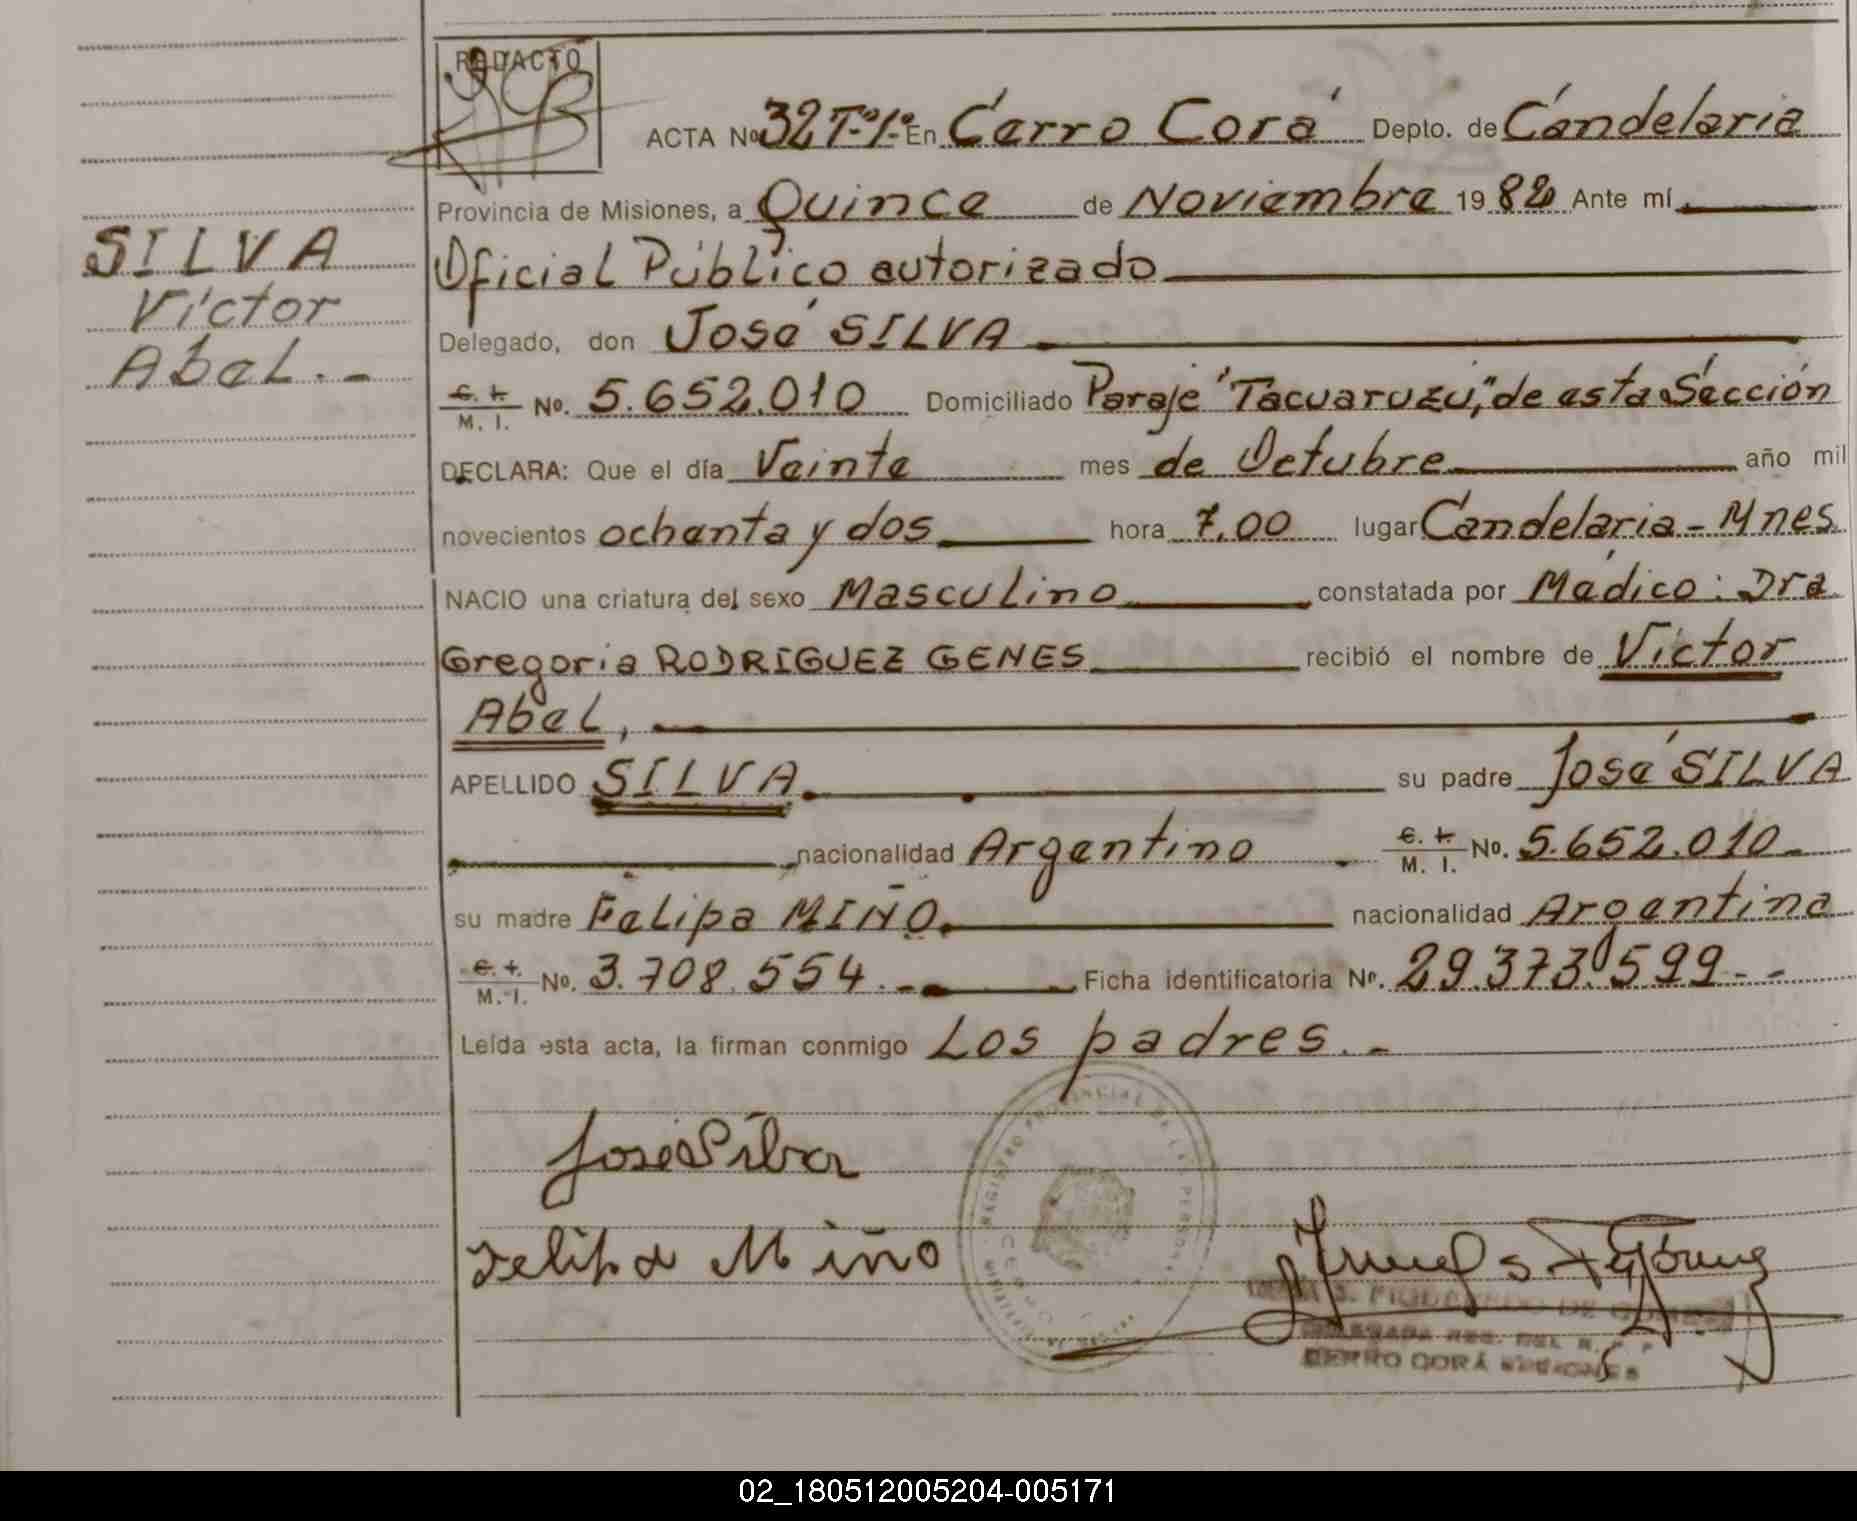 REDACTO
ACTA Nº 32 Tº 1º En Cerro Corá Depto. de Candelaria
Provincia de Misiones, a Quince de Noviembre 19 82 Ante mí
SILVA
Oficial Público autorizado
Víctor
Delegado, don José SILVA
Abel.-
C. I. M. I. No. 5.652.010 Domiciliado Paraje "Tacuaruzú", de esta Sección
DECLARA: Que el día Veinte mes de Octubre año mil
novecientos ochenta y dos hora 7,00 lugar Candelaria - Mnes.
NACIO una criatura del sexo Masculino constatada por Médico: Dra
Gregoria RODRIGUEZ GENES recibió el nombre de Víctor
Abel,
APELLIDO SILVA su padre José SILVA
nacionalidad Argentino C. I. M. I. No. 5.652.010-
su madre Felipa MIÑO nacionalidad Argentina
C. I. M. I. No. 3.708.554.- Ficha identificatoria Nº. 29.373.599--
Leída esta acta, la firman conmigo Los padres.-
José Silva
Felipa Miño
REGISTRO PROVINCIAL DE LAS PERSONAS
CERRO
DELEGADA REG. DEL R. P. P
CERRO CORÁ MISIONES
02_180512005204-005171